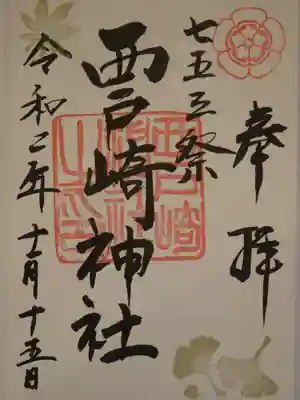 奉拝
七五三祭
西戸崎神社
令和二年十一月十五日
西戸崎
神社
之印